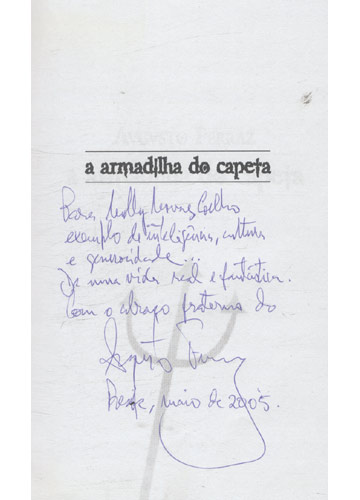 a armadilha do capeta
Para Nelly Novaes Coelho
exemplo de inteligência, cultura
e generosidade...
De uma vida real e fantástica.
Com o abraço fraterno do
Recife, maio de 2005.